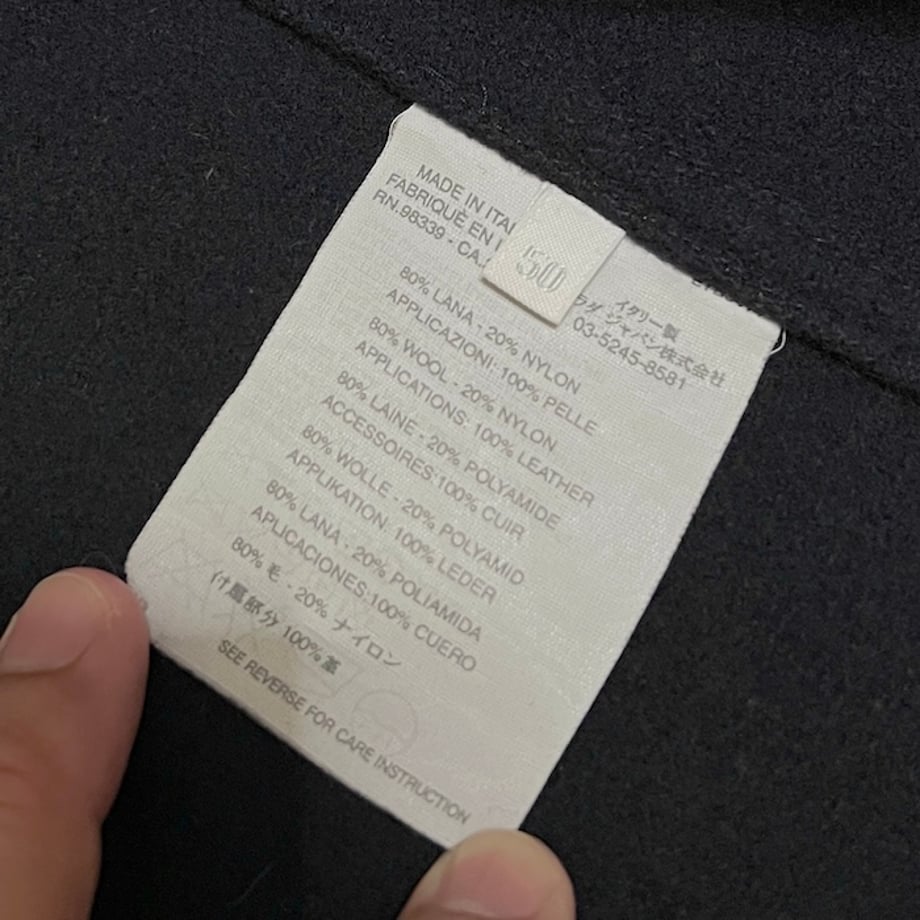 MADE IN ITA
FABRIQUÈ EN I
RN.98339 - CA.
50
イタリー製
ジャパン株式会社
03-5245-8581
80% LANA - 20% NYLON
APPLICAZIONI: 100% PELLE
80% WOOL - 20% NYLON
APPLICATIONS: 100% LEATHER
80% LAINE - 20% POLYAMIDE
ACCESSOIRES:100% CUIR
80% WOLLE - 20% POLYAMID
APPLIKATION: 100% LEDER
80% LANA - 20% POLIAMIDA
APLICACIONES:100% CUERO
80% 毛 - 20% ナイロン
付属部分 100% 革
SEE REVERSE FOR CARE INSTRUCTION